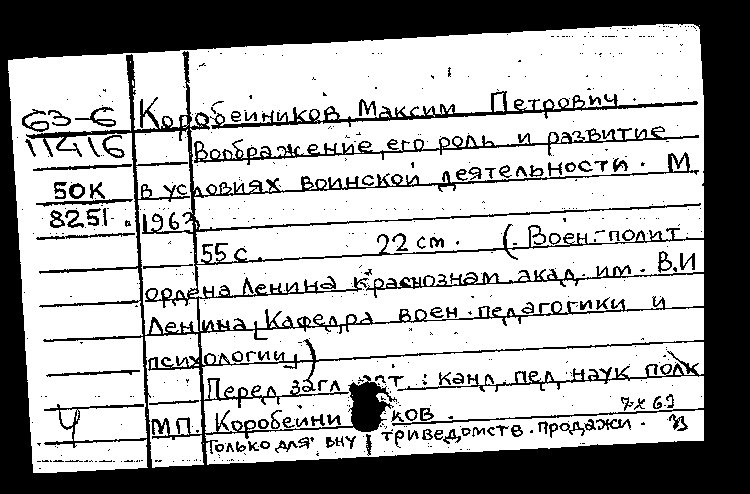 63-6 Коробейников, Максим Петрович.
11416 Воображение, его роль и развитие
50К в условиях воинской деятельности. М.
8251. 1963
55 с. 22 cm. (Воен.-полит.
ордена Ленина краснознам. акад. им. В.И
Ленина, Кафедра воен. педагогики и
психологии)
Перед загл. авт.: канд. пед. наук полк
Ч М.П. Коробейников. 7X63
Только для внутриведомств. продажи.